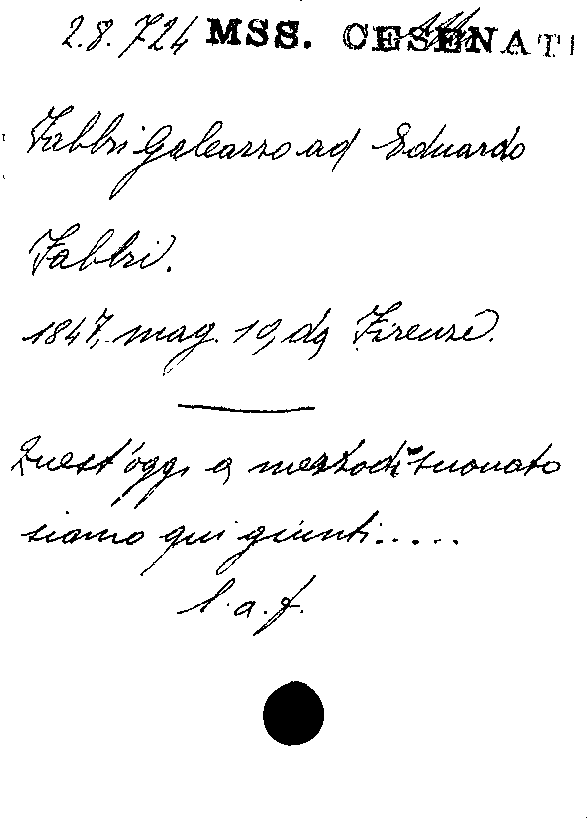 2.8.724 MSS. CESENATI
Fabbri Galeazzo ad Eduardo
Fabbri.
1847, mag. 19, da Firenze.
Quest'oggi a mezzodì suonato
siamo qui giunti.....
l.a.f.